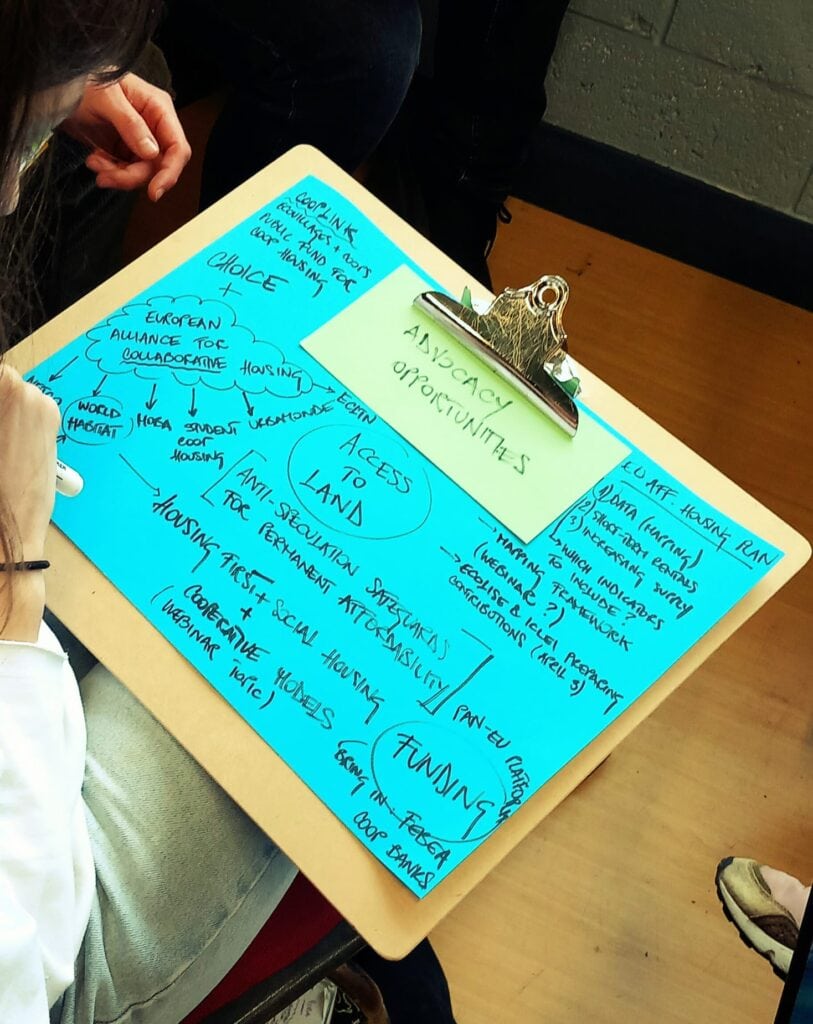 ADVOCACY
OPPORTUNITIES
COOPLINK
ECOVILLAGES + COOPS
PUBLIC FUND FOR
COOP HOUSING
CHOICE
+
EUROPEAN
ALLIANCE FOR
COLLABORATIVE HOUSING
WORLD
HABITAT
MOBA
STUDENT
COOP
HOUSING
URBAMONDE
ECTN
ACCESS
TO
LAND
[ANTI-SPECULATION SAFEGUARDS
FOR PERMANENT AFFORDABILITY]
HOUSING FIRST + SOCIAL HOUSING
+
COOPERATIVE MODELS
(WEBINAR TOPIC)
EU AFF. HOUSING PLAN
1) DATA (MAPPING)
2) SHORT-TERM RENTALS
3) INCREASING SUPPLY
↳ WHICH INDICATORS
TO INCLUDE?
→ MAPPING FRAMEWORK
(WEBINAR?)
→ ECOLISE & ICLEI PREPARING
CONTRIBUTIONS (APRIL 3)
PAN-EU PLATFORM
FUNDING
(BRING IN FEBEA
COOP BANKS